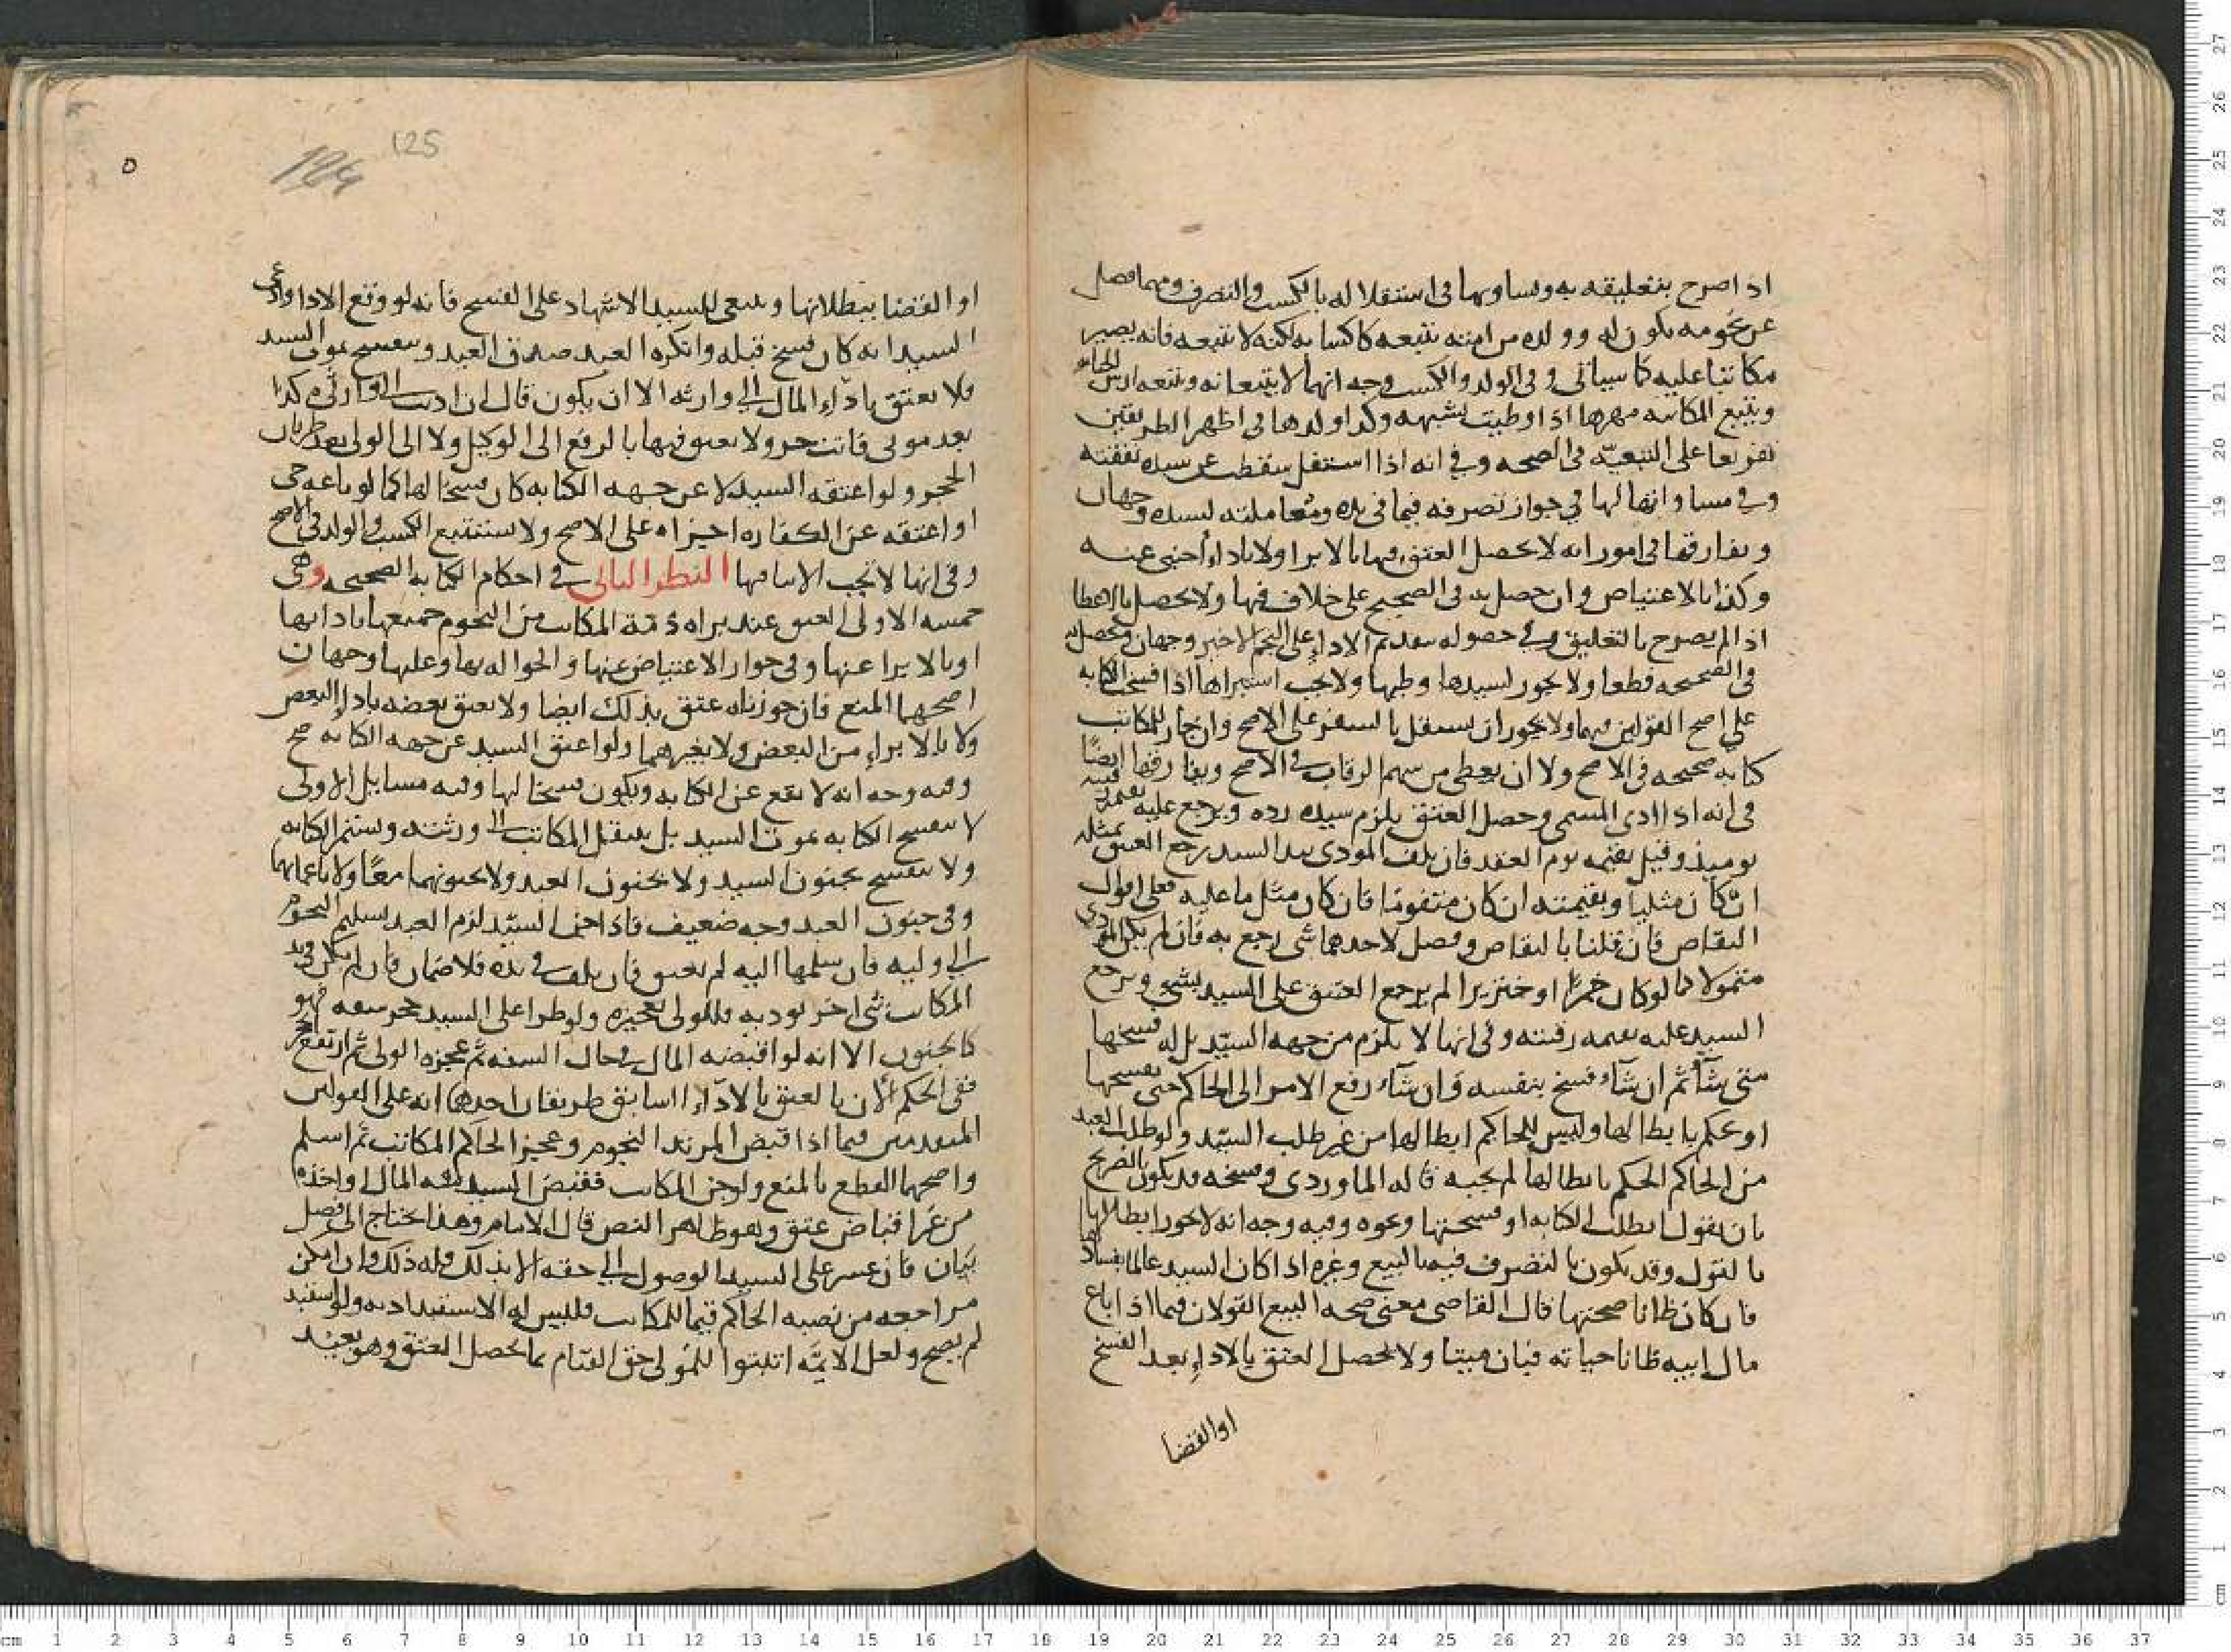 اذا صرح بتعليقه به ويساويها في استقلاله بالكسب والتصرف وبما فضل
عن نجومه يكون له وولده من امته يتبعه كاكسابه لكنه لا يتبعه فانه يصير
مكاتبا عليه كما سياتي وفي الولد والكسب وجه انهما لا يتبعانه ويتبعه ارش الجنايه
ويتبع المكاتبه مهرها اذا وطيت بشبهه وكذا ولدها في اظهر الطريقين
تفريعا على التبعيّه في الصحيحه وفي انه اذا استقل سقطت عن سيده نفقته
وفي مساواتها لها في جواز تصرفه فيما في يده ومعاملته لسيده وجهان
ويفارقها في امور انه لا يحصل العتق فيها بالابرا ولا باداء اجنبي عنه
وكذا بالاعتياض وان حصل به في الصحيح على خلاف فيها ولا يحصل بالاعطا
اذا لم يصرح بالتعليق وفي حصوله بتقديم الاداء على النجم الاخير وجهان ويحصل به
في الصحيحه قطعا ولا يجوز لسيدها وطيها ولا يجب استبراها اذا فسخ الكتابه
على اصح القولين فيهما ولا يجوز ان يستقل بالسفر على الاصح وان جاز للمكاتب
كتابه صحيحه في الاصح ولا ان يعطى من سهم الرقاب في الاصح ويفارقها ايضًا
في انه اذا ادى المسمى وحصل العتق يلزم سيده رده ويرجع عليه بقيمته
يوميذ وقيل بقيمه يوم العقد فان تلف المودى بيد السيد رجع العتيق بمثله
ان كان مثليا وبقيمته ان كان متقومًا فان كان مثل ما عليه فعلى اقوال
التقاص فان قلنا بالتقاص وفضل لاحدهما شي رجع به فان لم يكن المودى
متمولا كما لو كان خمرًا او خنزيرا لم يرجع العتيق على السيد بشي ويرجع
السيد عليه بقيمه رقبته وفي انها لا يلزم من جهه السيّد بل له فسخها
متى شاء ثم ان شاء فسخ بنفسه وان شاء رفع الامر الى الحاكم حتى يفسخها
او يحكم بابطالها وليس للحاكم ابطالها من غير طلب السيّد ولو طلب العبد
من الحاكم الحكم بابطالها لم يجبه قاله الماوردي وفسخه قد يكون بالتصريح
بان يقول ابطلت الكتابه او فسختها ونحوه وفيه وجه انه لا يجوز ابطالها
بالقول وقد يكون بالتصرف فيه بالبيع وغيره اذا كان السيد عالما بفسادها
فان كان ظانا صحتها قال القاضي معنى صحه البيع القولان فيما اذا باع
مال ابيه ظانا حياته فبان ميتا ولا يحصل العتق بالاداء بعد الفسخ
او القضا
125
او القضا ببطلانها وينبغي للسيد الاشهاد على الفسخ فانه لو وقع الادا وادعى
السيد انه كان فسخ قبله وانكره العبد صدق العبد وينفسخ بموت السيد
فلا يعتق باداء المال الى وارثه الا ان يكون قال ان اديت الى وارثي كذا
بعد موتي فانت حر ولا يعتق فيها بالرفع الى الوكيل ولا الى الولي بعد طريان
الحجر ولو اعتقه السيد لا عن جهه الكتابه كان فسخا لها كما لو باعه حتى
لو اعتقه عن الكفاره اجزاه على الاصح ولا يستتبع الكسب والولد في الاصح
وفي انها لا يجب الايتا فيها النظر الثاني في احكام الكتابه الصحيحه وهي
خمسه الاولى العتق عند براه ذمة المكاتب من النجوم جميعها بادايها
او بالابرا عنها وفي جواز الاعتياض عنها والحواله بها وعليها وجهان
اصحهما المنع فان جوزناه عتق بذلك ايضا ولا يعتق بعضه باداء البعض
ولا بالابراء من البعض ولا بغيرهما ولو اعتق السيد عن جهه الكتابه صح
وفيه وجه انه لا يقع عن الكتابه ويكون فسخا لها وفيه مسايل الاولى
لا تنفسخ الكتابه بموت السيد بل ينتقل المكاتب الى ورثته وتستمر الكتابه
ولا تنفسخ بجنون السيد ولا بجنون العبد ولا بجنونهما معًا ولا باغمايهما
وفي جنون العبد وجه ضعيف فاذا جن السيّد لزم العبد تسليم النجوم
الى وليه فان سلمها اليه لم يعتق فان تلف في يده فلا ضمان فان لم يكن في يد
المكاتب شي اخر يوديه فللولي تعجيزه ولو طرا على السيد حجر سفه فهو
كالجنون الا انه لو اقبضه المال في حال السفه ثم عجزه الولي ثم ارتفع الحجر
ففي الحكم الان بالعتق بالاداء السابق طريقان احدهما انه على القولين
المتقدمين فيما اذا قبض المرتد النجوم وعجز الحاكم المكاتب ثم اسلم
واصحهما القطع بالمنع ولو جن المكاتب فقبض السيد منه المال او اخذه
من غير اقباض عتق وهو ظاهر النص قال الامام وهذا يحتاج الى فضل
بيان فان عسر على السيد الوصول الى حقه الا بذلك فله ذلك وان امكن
مراجعه من نصبه الحاكم قيما للمكاتب فليس له الاستبداد به ولو استبد
لم يصح ولعل الايمّه اثبتوا للمولى حق القيام بما يحصل العتق وهو بعيد